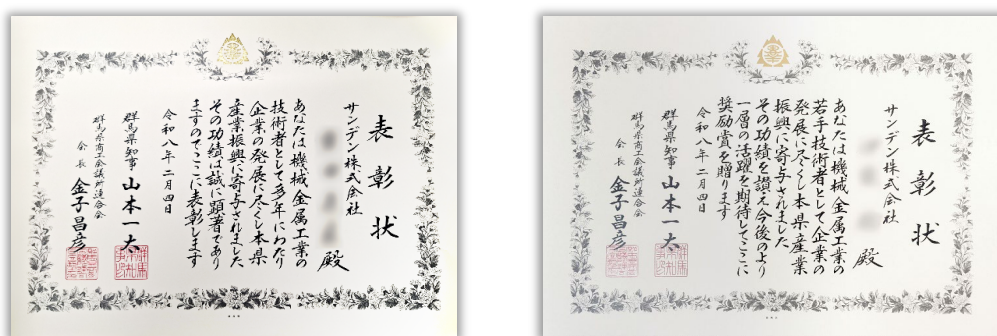 表彰状
サンデン株式会社
殿
あなたは機械金属工業の
技術者として多年にわたり
企業の発展に尽くし本県
産業振興に寄与されました
その功績は誠に顕著であり
ますのでここに表彰します
令和八年二月四日
群馬県知事 山本一太
群馬県商工会議所連合会
会長 金子昌彦
表彰状
サンデン株式会社
殿
あなたは機械金属工業の
若手技術者として企業の
発展に尽くし本県産業
振興に寄与されました
その功績を讃え今後のより
一層の活躍を期待してここに
奨励賞を贈ります
令和八年二月四日
群馬県知事 山本一太
群馬県商工会議所連合会
会長 金子昌彦